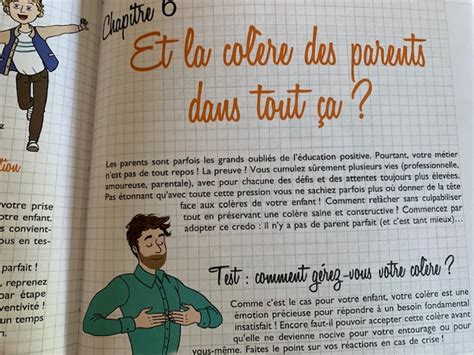 Chapitre 6
Et la colère des parents
dans tout ça ?
Les parents sont parfois les grands oubliés de l'éducation positive. Pourtant, votre métier
n'est pas de tout repos ! La preuve ? Vous cumulez sûrement plusieurs vies (professionnelle,
amoureuse, parentale), avec pour chacune des défis et des attentes toujours plus élevées.
Pas étonnant qu'avec toute cette pression vous ne sachiez parfois plus où donner de la tête
face aux colères de votre enfant ! Comment relâcher sans culpabiliser
tout en préservant une colère saine et constructive ? Commencez par
adopter ce credo : il n'y a pas de parent parfait (et c'est tant mieux)...
Test : comment gérez-vous votre colère ?
Comme c'est le cas pour votre enfant, votre colère est une
émotion précieuse pour répondre à un besoin fondamental
insatisfait ! Encore faut-il pouvoir accepter cette colère avant
qu'elle ne devienne nocive pour votre entourage ou pour
vous-même. Faites le point sur vos réactions en cas de crise !
tion
votre prise
otre enfant.
s convient-
ous en tes-
parfait !
reprenez
par étape
ventivité !
un temps
n.